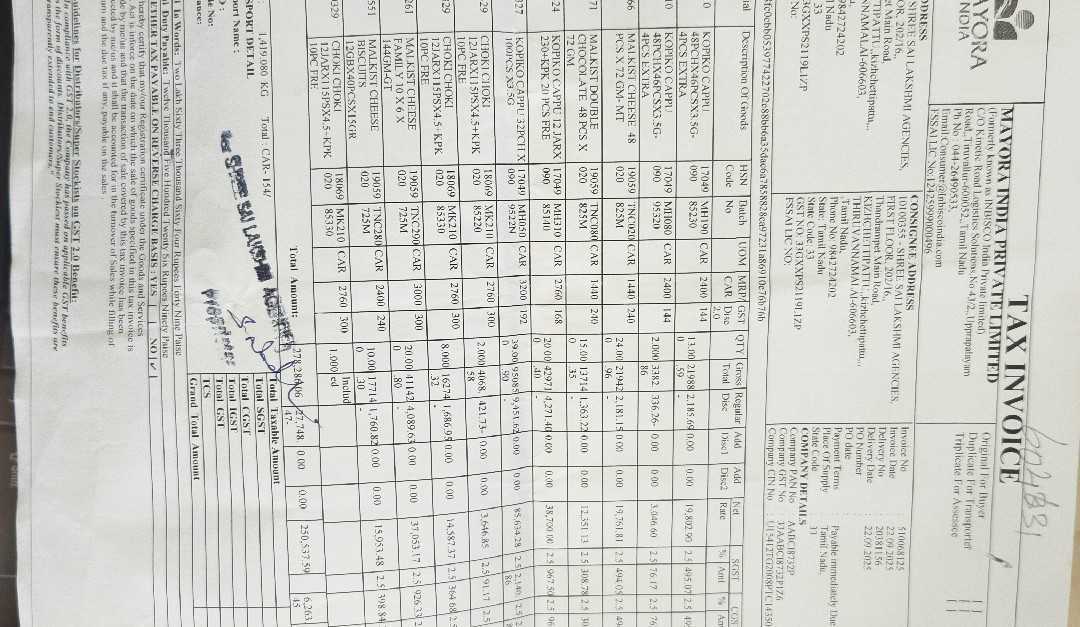 602483
TAX INVOICE
MAYORA INDIA PRIVATE LIMITED
(Formerly known as INBISCO India Private limited)
C/O Kinetic Road Logistics Solutions No 43/2, Uppapalayam
Road, Tiruvallur-600052, Tamil Nadu
Ph No : 044-26496533,
Email Consumer@inbiscoindia.com
FSSAI LIC No:12425999000496
Original For Buyer
Duplicate For Transporter
Triplicate For Assessee
AYORA
INDIA
DDRESS
SHREE SAI LAKSHMI AGENCIES,
OR, 202/16,
TIPATTU, ,kizhchettipattu,,
et Main Road,
NNAMALAI-606603,
l Nadu
9842724202
33
3GXXPS2119L1ZP
No:
CONSIGNEE ADDRESS
10100355 - SHREE SAI LAKSHMI AGENCIES,
FIRST FLOOR, 202/16,
KEEZHCHETTIPATTU, ,kizhchettipattu,,
Thandrampet Main Road,
THIRUVANNAMALAI-606603,
,Tamil Nadu
Phone No: 9842724202
State: Tamil Nadu
State Code: 33
GST NO: 33GXXPS2119L1ZP
FSSAI LIC NO:
Invoice No : 510068125
Invoice Date : 22.09.2025
Delivery No : 20381166
Delivery Date : 22.09.2025
PO Number :
PO date :
Payment Terms : Payable immediately Due
Place Of Supply : Tamil Nadu,
State Code : 33
COMPANY DETAILS
Company PAN No : AABCI8732P
Company GST No : 33AABCI8732P1Z6
Company CIN No : U15412TG2008PTC14350
Description Of Goods HSN Code Batch No UOM MRP/ CAR GST 2.0 Disc QTY Gross Total Regular Disc Add Disc1 Add Disc2 Net Rate SGST % Amt
0 KOPIKO CAPPU 48PCHX46PCSX3.5G-4PCS EXTRA 17049 090 MH190 85220 CAR 2400 144 13.000 21988.59 2,185.69- 0.00 0.00 19,802.90 2.5 495.07 2.5
10 KOPIKO CAPPU 48PCHX46PCSX3.5G-4PCS EXTRA 17049 090 MI080 95320 CAR 2400 144 2.000 3382.86 336.26- 0.00 0.00 3,046.60 2.5 76.17 2.5
66 MALKIST CHEESE 48 PCS X 72 GM-MT 19059 020 TNC020 825M CAR 1440 240 24.000 21942.96 2,181.15- 0.00 0.00 19,761.81 2.5 494.05 2.5
71 MALKIST DOUBLE CHOCOLATE 48 PCS X 72 GM 19059 020 TNC080 825M CAR 1440 240 15.000 13714.35 1,363.22- 0.00 0.00 12,351.13 2.5 308.78 2.5
24 KOPIKO CAPPU 12 JARX 230-KPK 20 PCS FRE 17049 090 MH310 85140 CAR 2760 168 20.000 42971.40 4,271.40- 0.00 0.00 38,700.00 2.5 967.50 2.5
927 KOPIKO CAPPU 32PCH X 100PCS X3.5G 17049 090 MH050 9522N CAR 3200 192 39.000 95085.90 9,451.62- 0.00 0.00 85,634.28 2.5 2,140.86 2.5
29 CHOKI CHOKI 12JARX115PSX4.5+KPK 10PC FRE 18069 020 MK210 85220 CAR 2760 300 2.000 4068.58 421.73- 0.00 0.00 3,646.85 2.5 91.17 2.5
329 CHOKI CHOKI 12JARX115PSX4.5+KPK 10PC FRE 18069 020 MK210 85330 CAR 2760 300 8.000 16274.32 1,686.95- 0.00 0.00 14,587.37 2.5 364.68 2.5
261 MALKIST CHEESE FAMILY 10 X 6 X 144GM-GT 19059 020 TNC290 725M CAR 3000 300 20.000 41142.80 4,089.63- 0.00 0.00 37,053.17 2.5 926.33
551 MALKIST CHEESE BISCUITS 12BGX40PCSX15GR 19059 020 TNC280 725M CAR 2400 240 10.000 17714.30 1,760.82- 0.00 0.00 15,953.48 2.5 398.84
0329 CHOKI CHOKI 12JARX115PSX4.5+KPK 10PC FRE 18069 020 MK210 85330 CAR 2760 300 1.000 Included
Total Amount: 278,286.06 27,748.47- 0.00 0.00 250,537.59 6,263.45
SPORT DETAIL
port Name :
1,419.080 KG Total : CAR- 154/
For SHREE SAI LAKSHMI AGENCIES
Total Taxable Amount
Total SGST
Total CGST
Total IGST
Total GST
TCS
Grand Total Amount
l In Words: Two Lakh Sixty Three Thousand Sixty Four Rupees Forty Nine Paise
l Duty Payable: Twelve Thousand Five Hundred Twenty Six Rupees Ninety Paise
ETHER TAX PAYABLE ON REVERSE CHARGE BASIS : YES NO
hereby certify that my/our Registration certificate under the Goods and Services
Act is inforce on the date on which the sale of goods specified in this tax invoice is
de by me/us and that the transaction of sale covered by this tax invoice has been
ected by me/us and it shall be accounted for in the turnover of Sales while filling of
turn and the due tax if any, payable on the sales .
uidelines for Distributors/Super Stockists on GST 2.0 Benefit:
In compliance with GST 2.0, the Company has passed on applicable GST benefits
n the form of discounts. Distributors/Super Stockist must ensure these benefits are
ransparently extended to end customers."